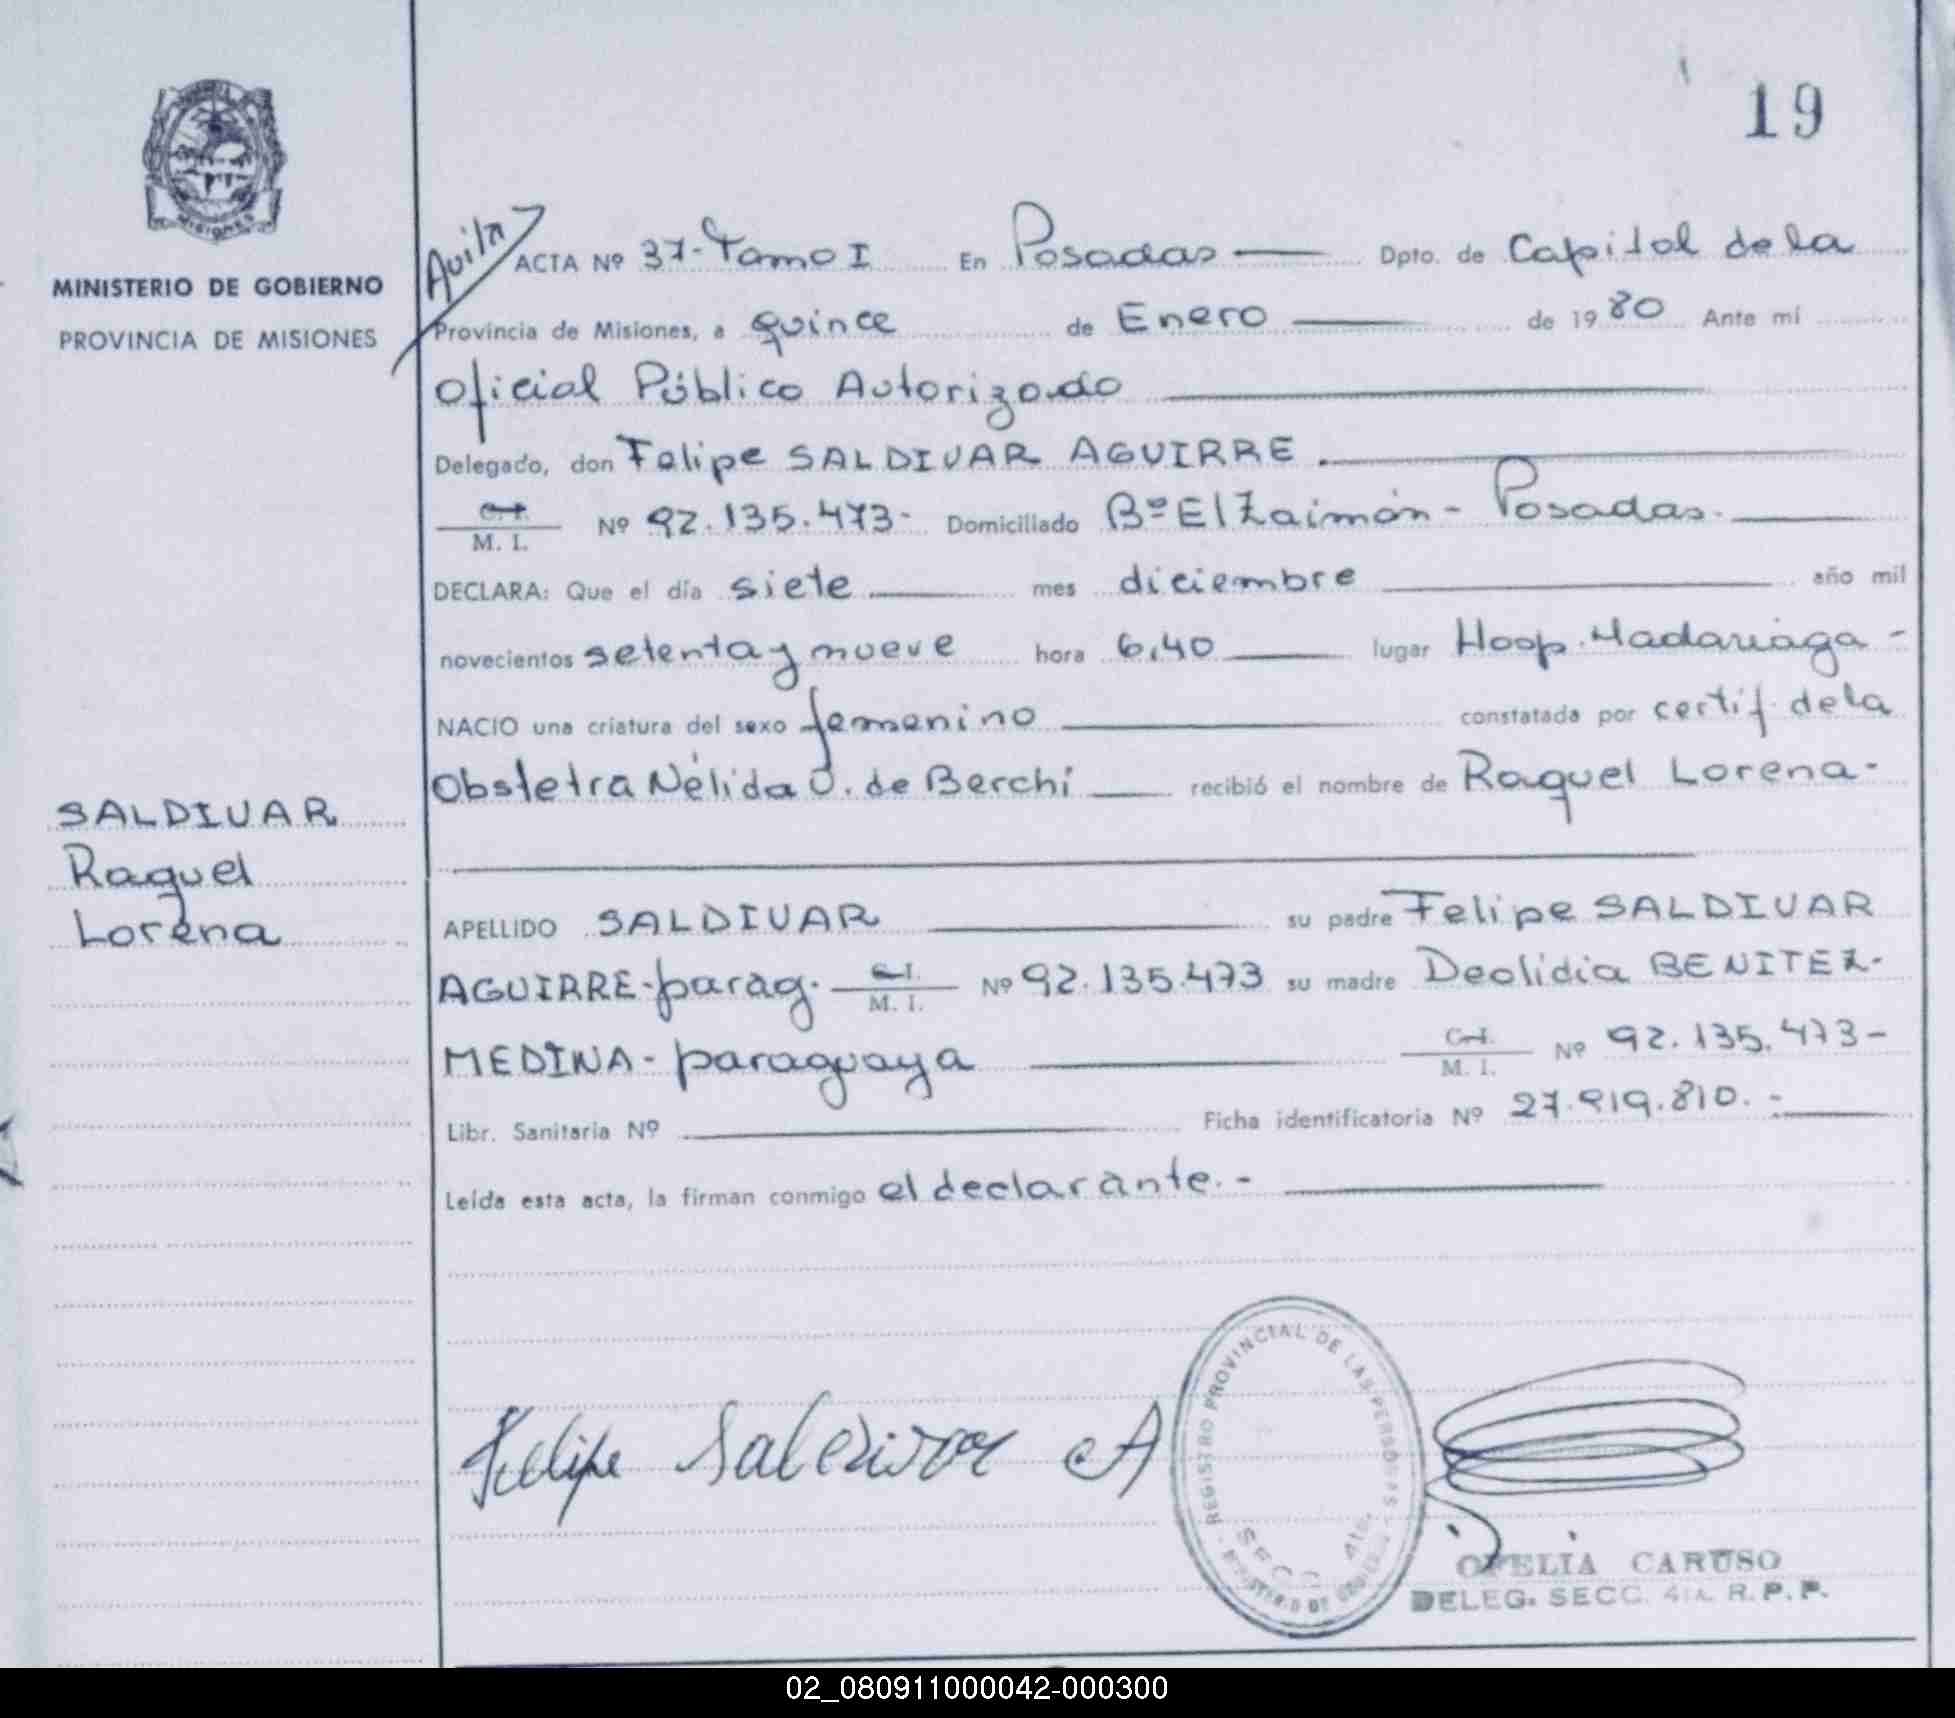 19
MISIONES
MINISTERIO DE GOBIERNO
PROVINCIA DE MISIONES
SALDIVAR
Raquel
Lorena
Avila
ACTA Nº 37-Tomo I En Posadas Dpto. de Capital de la
Provincia de Misiones, a quince de Enero de 1980 Ante mí
Oficial Público Autorizado
Delegado, don Felipe SALDIVAR AGUIRRE.
C. I.
M. I. Nº 92.135.473- Domiciliado Bº El Zaimán - Posadas.
DECLARA: Que el día siete mes diciembre año mil
novecientos setenta y nueve hora 6,40 lugar Hosp. Madariaga -
NACIO una criatura del sexo femenino constatada por certif. de la
Obstetra Nélida O. de Berchi recibió el nombre de Raquel Lorena-
APELLIDO SALDIVAR su padre Felipe SALDIVAR
AGUIRRE-parag. C. I. M. I. Nº 92.135.473 su madre Deolidia BENITEZ-
MEDINA - paraguaya C. I. M. I. Nº 92.135.473-
Libr. Sanitaria Nº Ficha identificatoria Nº 27.919.810.-
Leída esta acta, la firman conmigo el declarante.-
Felipe Saldivar A
REGISTRO PROVINCIAL DE LAS PERSONAS - MINISTERIO DE GOBIERNO -
SECC. 4ta.
OFELIA CARUSO
DELEG. SECC. 4ta. R. P. P.
02_080911000042-000300